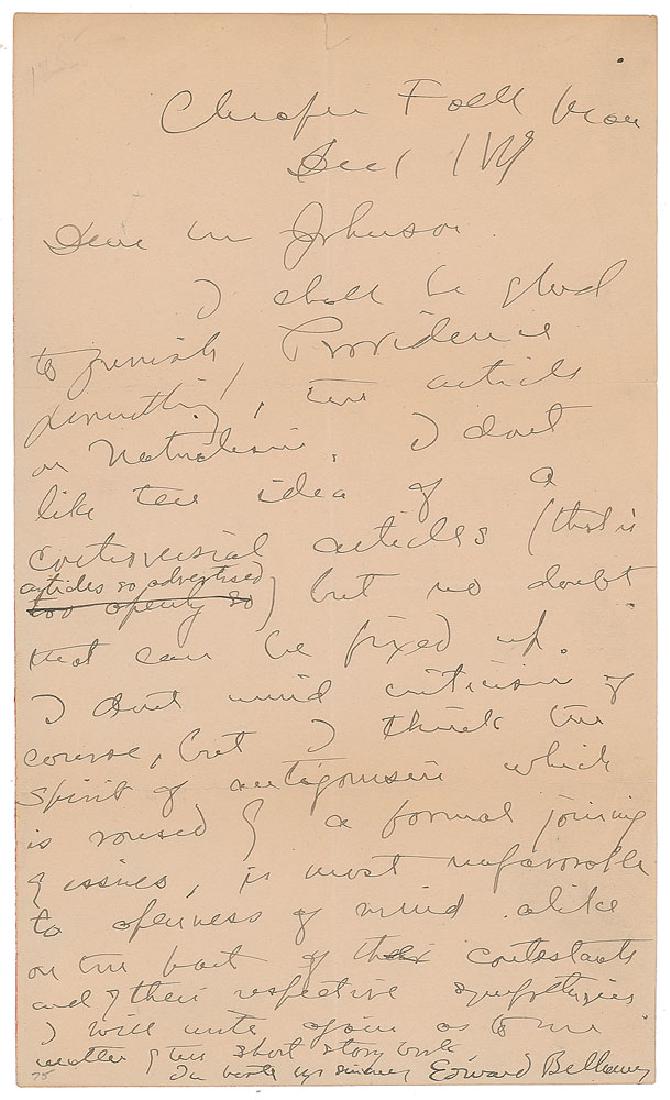 Chicopee Falls Mass
Dec 1
Dear Mr Johnson.
I shall be glad
to furnish, Providence
permitting, the article
on Nationalism. I dont
like the idea of a
controversial articles (that is
articles so advertised
too openly so) but no doubt
that can be fixed up.
I dont mind criticism of
course, but I think the
spirit of antagonism which
is roused by a formal joining
of issues, is most unfavorable
to openness of mind alike
on the part of the contestants
and of their respective sympathizers
I will write again as to the
matter of the short story
In haste yrs sincerely Edward Bellamy